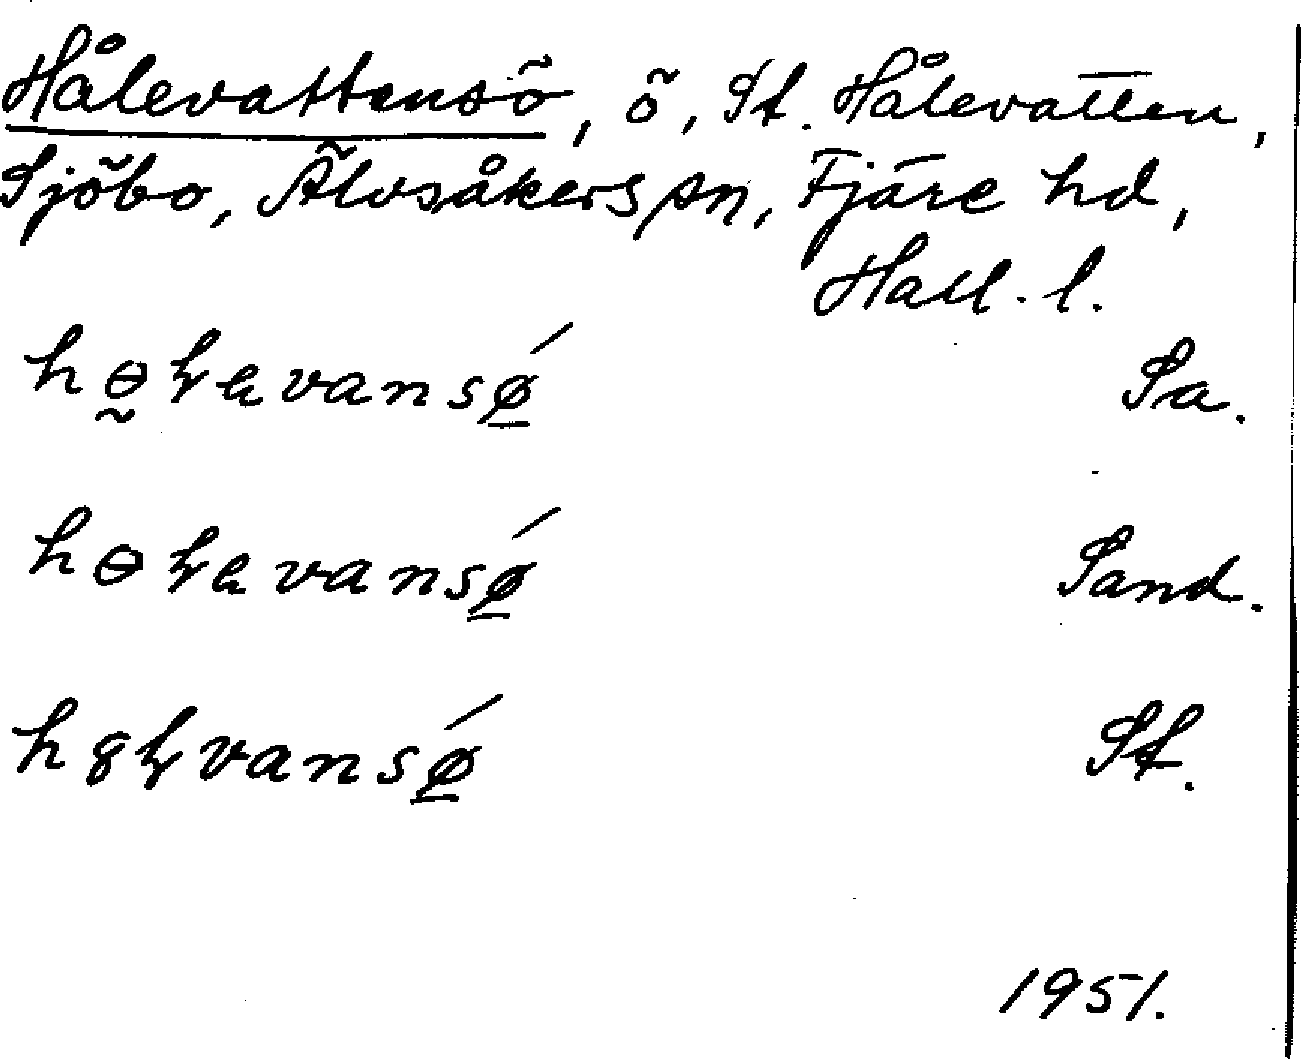 Hålevattensö, ö, St. Hålevatten,
Sjöbo, Älvsåkers sn, Fjäre hd,
Hall. l.
hɵ̰ɽəvansǿ Sa.
hɵɽəvansǿ Sand.
h8ɽvansǿ St.
1951.